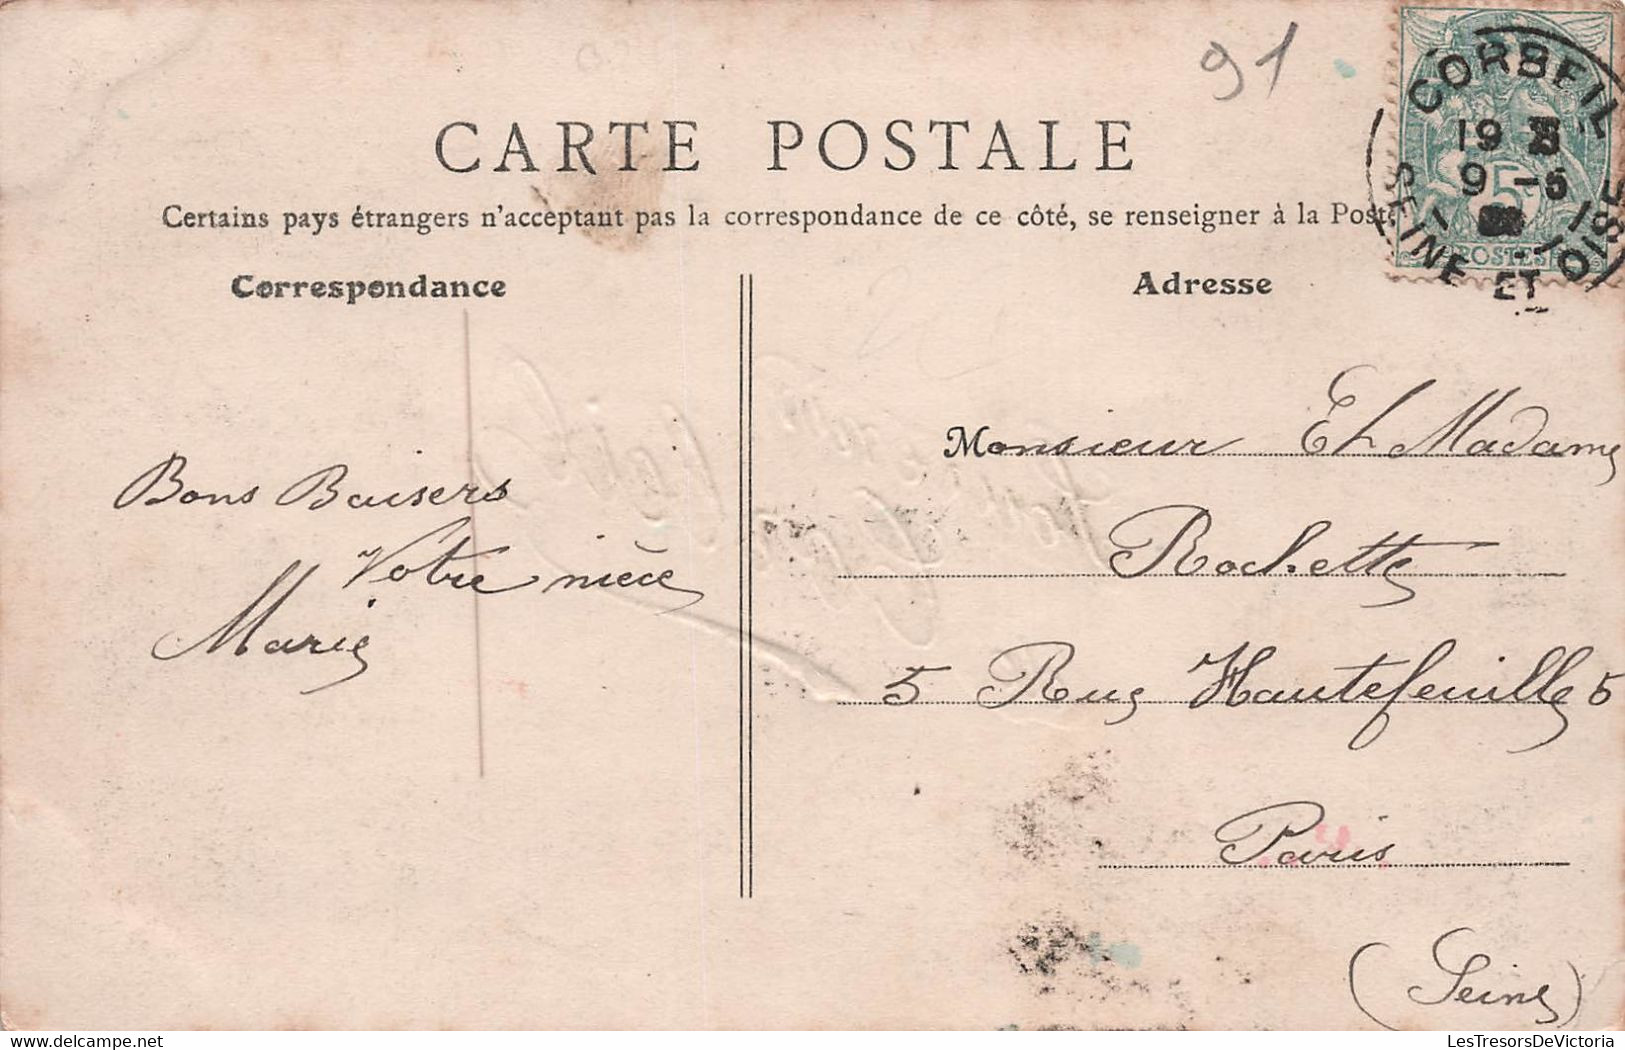 91
CORBEIL
19
9 -5
SEINE ET OISE
5
POSTES
CARTE POSTALE
Certains pays étrangers n'acceptent pas la correspondance de ce côté, se renseigner à la Poste
Correspondance
Adresse
Bons Baisers
Votre nièce
Marie
Monsieur Et Madame
Rochette
5 Rue Hautefeuille 5
Paris
(Seine)
LesTresorsDeVictoria